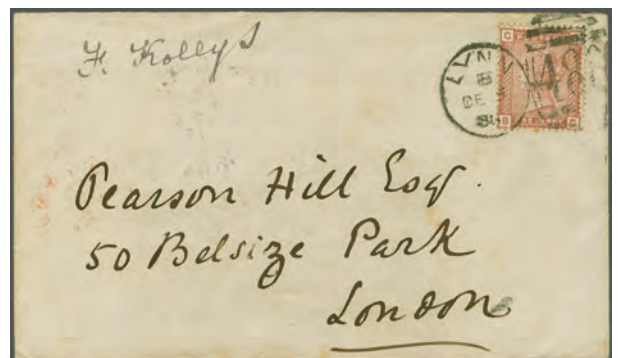 F. Kollys
LYNN
B
DE
G
B G
Pearson Hill Esqr.
50 Belsize Park
London